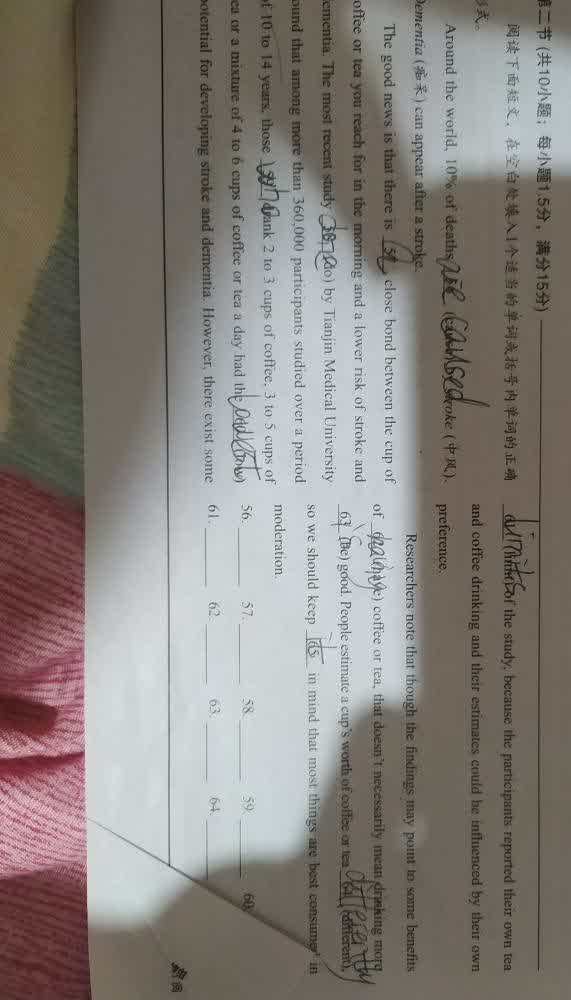 第二节 (共10小题；每小题1.5分，满分15分)
阅读下面短文，在空白处填入1个适当的单词或括号内单词的正确
形式。
Around the world, 10% of deaths are caused stroke (中风).
Dementia (痴呆) can appear after a stroke.
The good news is that there is close bond between the cup of
coffee or tea you reach for in the morning and a lower risk of stroke and
dementia. The most recent study (do) by Tianjin Medical University
found that among more than 360,000 participants studied over a period
of 10 to 14 years, those drank 2 to 3 cups of coffee, 3 to 5 cups of
tea or a mixture of 4 to 6 cups of coffee or tea a day had the (low)
potential for developing stroke and dementia. However, there exist some
of the study, because the participants reported their own tea
and coffee drinking and their estimates could be influenced by their own
preference.
Researchers note that though the findings may point to some benefits
of (have) coffee or tea, that doesn't necessarily mean drinking more
(be) good. People estimate a cup's worth of coffee or tea differently (different),
so we should keep 65 in mind that most things are best consumed in
moderation.
56. 57. 58. 59. 60.
61. 62. 63. 64.